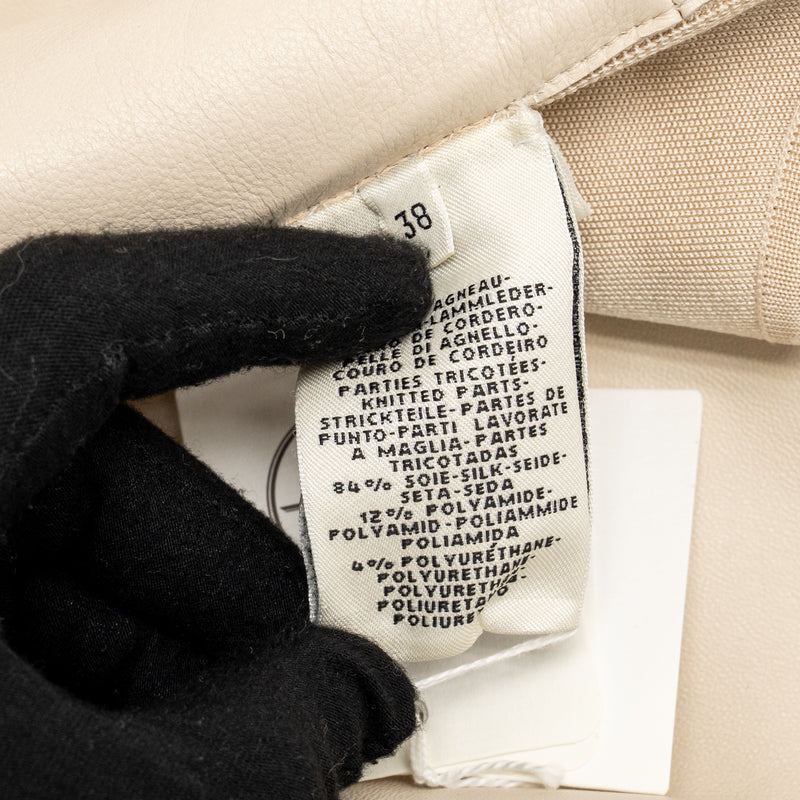 38
AGNEAU-
LAMMLEDER-
DE CORDERO-
PELLE DI AGNELLO-
COURO DE CORDEIRO
PARTIES TRICOTÉES-
KNITTED PARTS-
STRICKTEILE-PARTES DE
PUNTO-PARTI LAVORATE
A MAGLIA-PARTES
TRICOTADAS
84% SOIE-SILK-SEIDE-
SETA-SEDA
12% POLYAMIDE-
POLYAMID-POLIAMMIDE
POLIAMIDA
4% POLYURÉTHANE-
POLYURETHANE-
POLYURETHAN-
POLIURETANO-